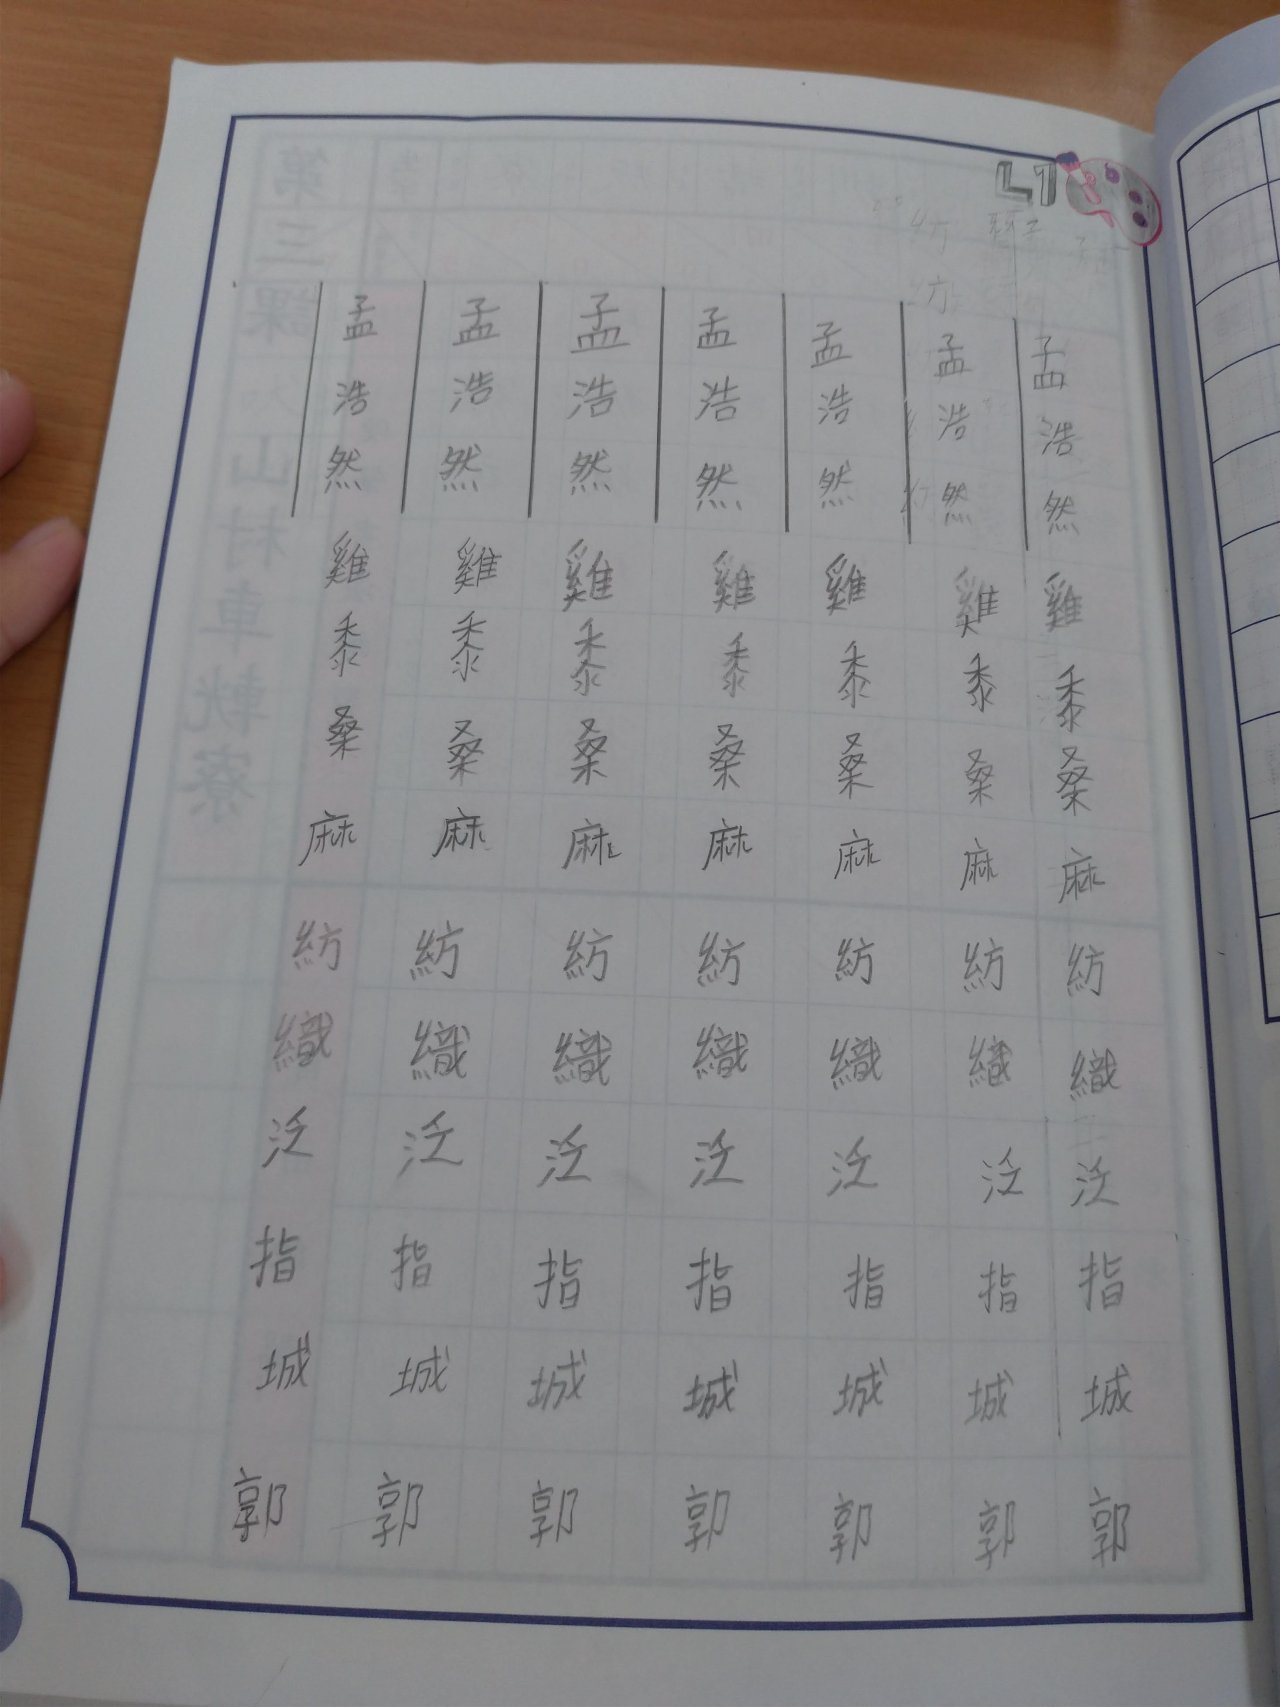 L1
孟浩然雞黍桑麻紡織泛指城郭
孟浩然雞黍桑麻紡織泛指城郭
孟浩然雞黍桑麻紡織泛指城郭
孟浩然雞黍桑麻紡織泛指城郭
孟浩然雞黍桑麻紡織泛指城郭
孟浩然雞黍桑麻紡織泛指城郭
孟浩然雞黍桑麻紡織泛指城郭
第三課
山村車軌寮